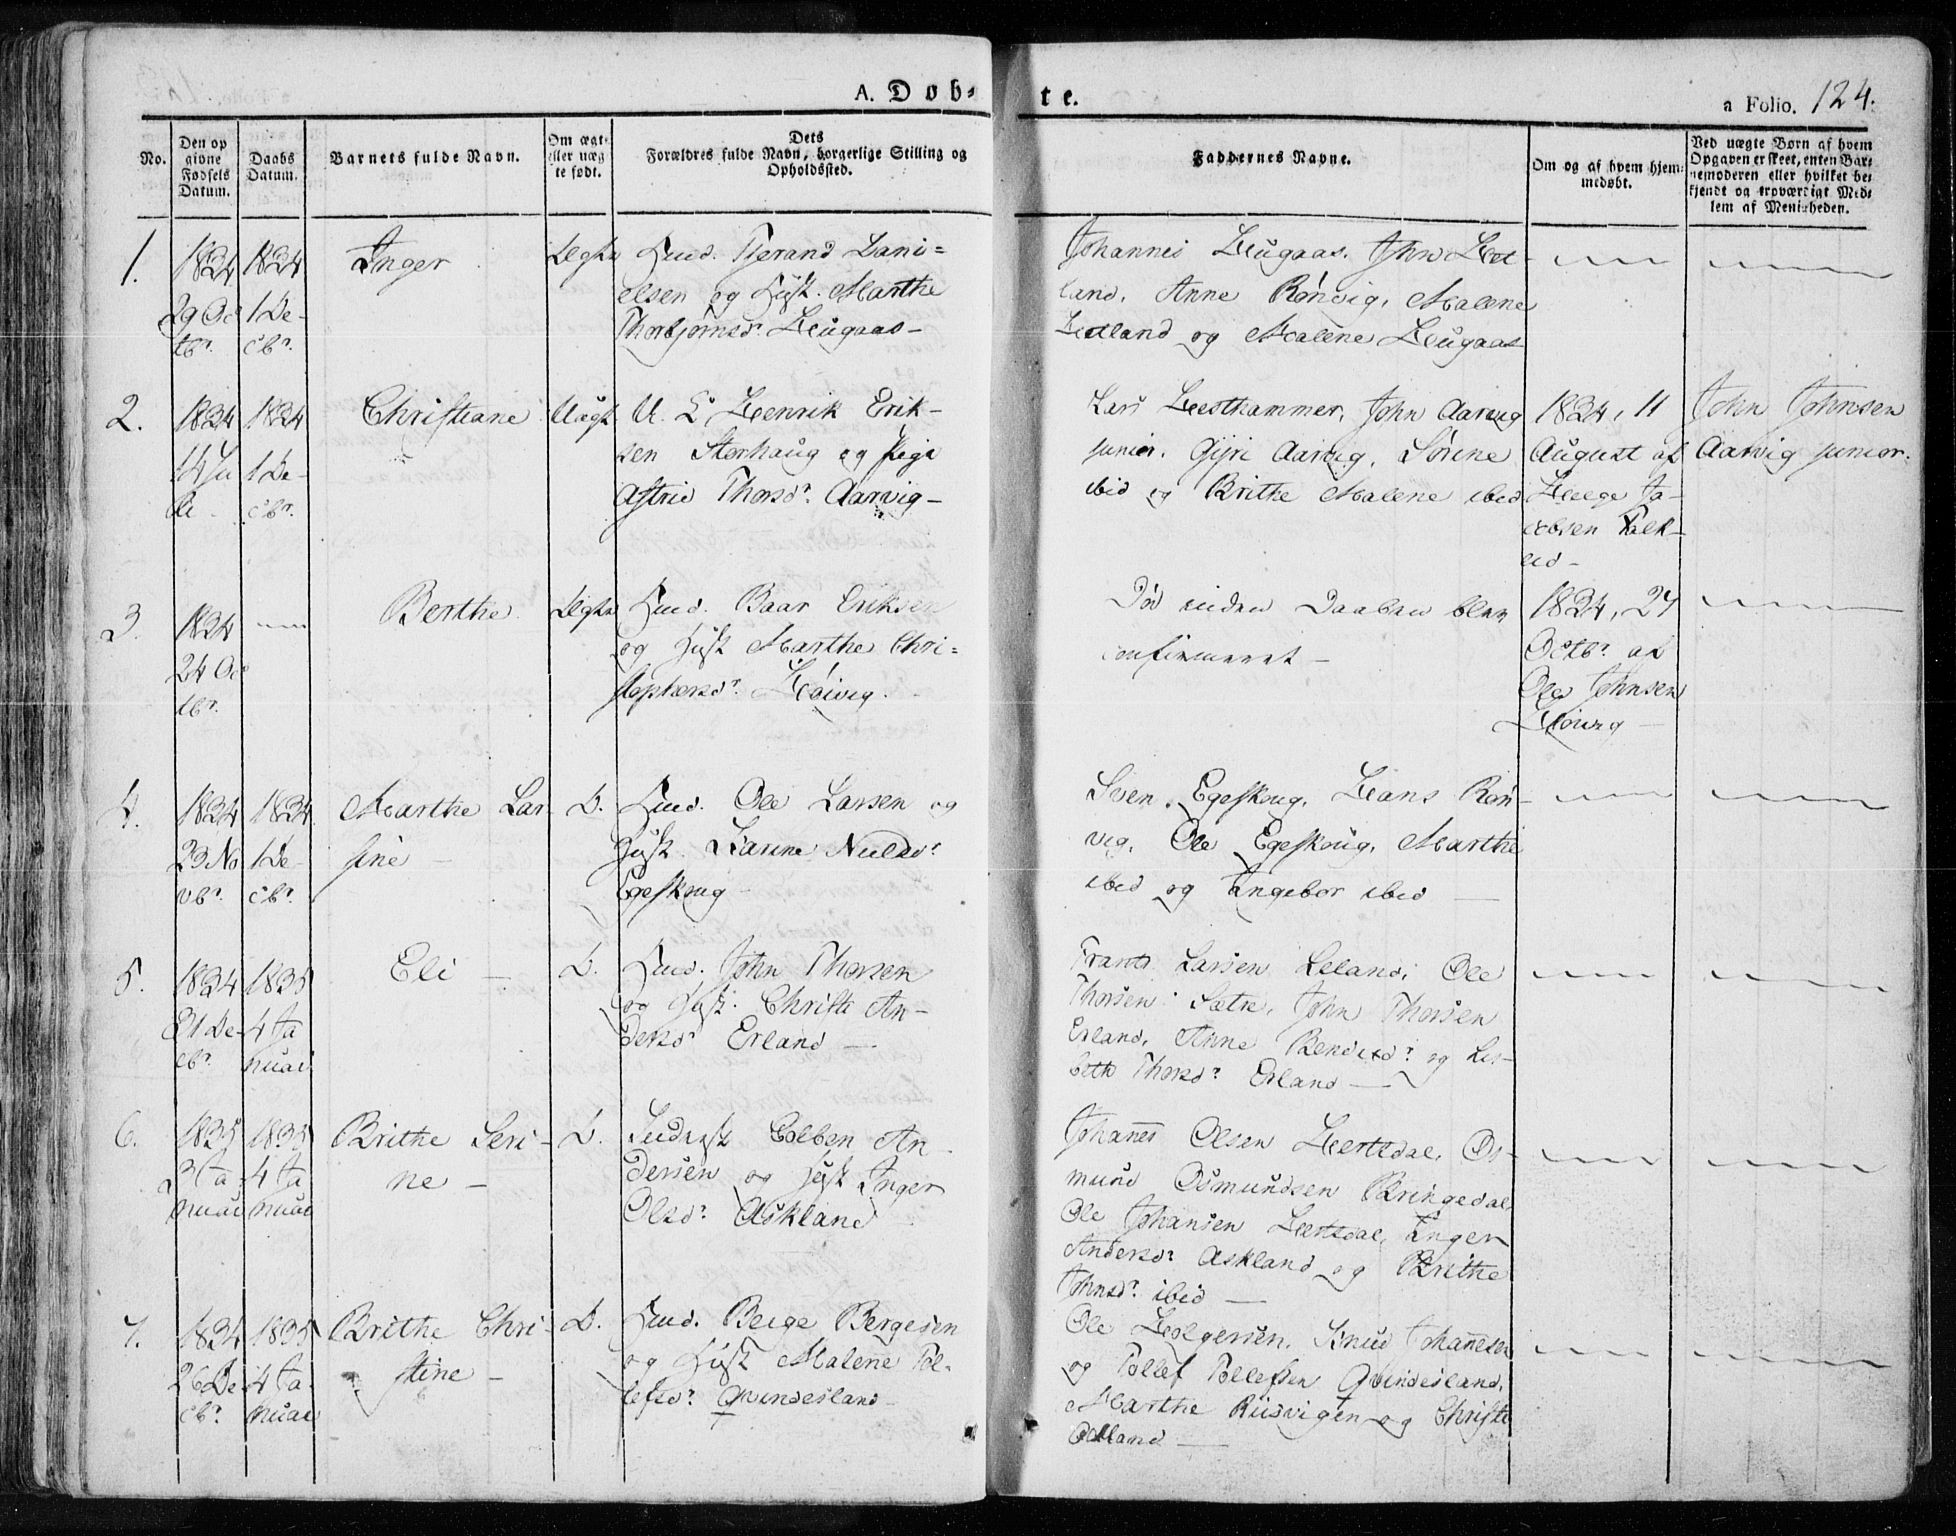 A. Døb-
te.
a Folio. 124.
No.
Den op
givne
Fødsels
Datum.
Daabs
Datum.
Barnets fulde Navn.
Om ægt-
eller uæg
te født.
Dets
Forældres fulde Navn, borgerlige Stilling og
Opholdssted.
Faddernes Navne.
Om og af hvem hjem-
medøbt.
Ved uægte Børn af hvem
Opgaven er skeet, enten Bar-
nemoderen eller hvilket be-
kjendt og troværdigt Med-
lem af Menigheden.
1.
1834
29 Oc
tbr.
1834
1 De-
cbr.
Inger
Ægte
Huusm. Tjerand Dani-
elsen og Hust. Marthe
Thorbjørnsdr. Haugaas-
Johannes Haugaas, John Het-
land, Anne Rønvig, Malene
Hetland og Malene Haugaas
2.
1834
14 Ju
li -
1834
1 De-
cbr.
Christiane
Uægte
U. K. Henrik Erik-
sen Storhaug og Pige
Astrid Thorsdr. Aarvig-
Lars Hesthammer, John Aarvig
junior, Gyri Aarvig, Sørine
ibid og Brithe Malene ibid
1834, 11
August af
Helge Ja-
cobsen Falk-
eid-
John Johnsen
Aarvig junior.
3.
1834
24 Oc
tbr.
Berthe
Ægte
Huusm. Baar Eriksen
og Hust Marthe Chri-
stophersdr. Høivig.
Død inden Daaben blev
confirmeret-
1834, 27
Octbr. af
Ole Johnsen
Høivig-
4.
1834
23 No
vbr.
1834
1 De-
cbr.
Marthe Lar-
sine-
D.
Huusm. Ole Larsen og
Hust. Karine Nielsdr.
Egeskoug-
Sven Egeskoug, Hans Røn-
vig, Ole Egeskoug, Marthe
ibid og Ingebor ibid-
5.
1834
21 De-
cbr.
1835
4 Ja
nuar
Eli-
D.
Huusm. John Thorsen
og Hust. Christi An-
dersdr Erland-
Frants Larsen Leland, Ole
Thorsen Sætre, John Thorsen
Erland, Anne Bendixdr. og Lis-
beth Thorsdr. Erland-
6.
1835
3 Ja
nuar
1835
4 Ja
nuar
Brithe Seri-
ne-
D.
Colben An-
dersen og Hust Inger
Olsdr. Askland
Johannes Olsen Hertsdal, Os-
mund Osmundsen Bringedal,
Ole Johansen Hertsdal, Inger
Andersdr. Askland og Brithe
Johnsdr. ibid-
7.
1834
26 De
cbr.
1835
4 Ja
nuar
Brithe Chri-
stine-
D.
Huusm. Berge Bergesen
og Hust Malene Tol-
lefsdr. Qvindesland-
Ole Holgersen, Knud Johannesen
og Tollef Tollefsen Qvindesland,
Marthe Riisvigen og Christi
Oaland-